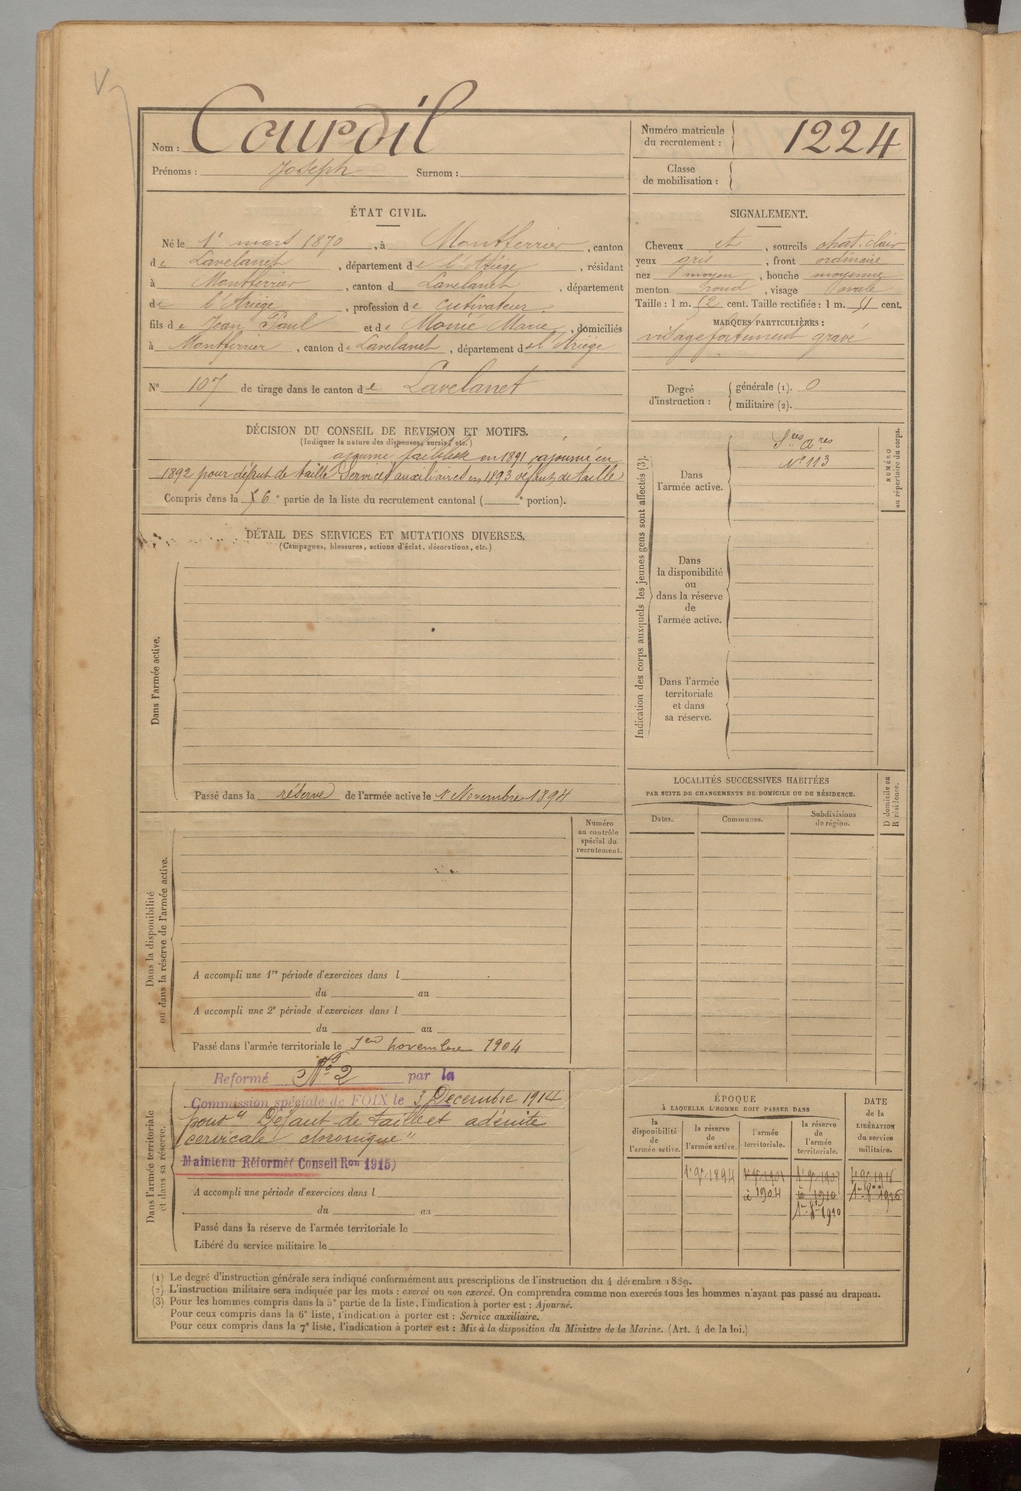 Nom : Courdil
Prénoms : Joseph Surnom :
Numéro matricule du recrutement : 1224
Classe de mobilisation :
ÉTAT CIVIL.
Né le 1er mars 1870, à Montferrier, canton
de Lavelanet, département de l'Ariège, résidant
à Montferrier, canton d Lavelanet, département
de l'Ariège, profession de Cultivateur
fils de Jean Paul et de Monié Marie, domiciliés
à Montferrier, canton de Lavelanet, département de l'Ariège
N° 107 de tirage dans le canton de Lavelanet
SIGNALEMENT.
Cheveux et, sourcils chat. clair
yeux gris, front ordinaire
nez moyen, bouche moyenne
menton rond, visage ovale
Taille : 1 m. 52 cent. Taille rectifiée : 1 m. cent.
MARQUES PARTICULIÈRES :
visage fortement gravé
Degré d'instruction : générale (1). 0
militaire (2).
DÉCISION DU CONSEIL DE REVISION ET MOTIFS.
(Indiquer la nature des dispenses, sursis, etc.)
ajourné faiblesse en 1891, ajourné en
1892 pour défaut de taille Services auxiliaires en 1893 défaut de taille
Compris dans la 6e partie de la liste du recrutement cantonal ( e portion).
DÉTAIL DES SERVICES ET MUTATIONS DIVERSES.
(Campagnes, blessures, actions d'éclat, décorations, etc.)
Dans l'armée active.
Passé dans la réserve de l'armée active le 1 Novembre 1894
Indication des corps auxquels les jeunes gens sont affectés (3).
NUMÉRO au répertoire du corps.
Dans l'armée active.
Sces aires
N° 113
Dans la disponibilité ou dans la réserve de l'armée active.
Dans l'armée territoriale et dans sa réserve.
LOCALITÉS SUCCESSIVES HABITÉES
PAR SUITE DE CHANGEMENTS DE DOMICILE OU DE RÉSIDENCE.
Dates. Communes. Subdivisions de région.
D domicile ou R résidence.
Dans la disponibilité ou dans la réserve de l'armée active.
Numéro au contrôle spécial du recrutement.
A accompli une 1re période d'exercices dans l
du au
A accompli une 2e période d'exercices dans l
du au
Passé dans l'armée territoriale le 1er novembre 1904
Dans l'armée territoriale et dans sa réserve.
Reformé N° 2 par la
Commission spéciale de FOIX le 3 Décembre 1914
pour " Défaut de taille et adénite
cervicale chronique "
Maintenu Réformé (Conseil Ron 1915)
A accompli une période d'exercices dans l
du au
Passé dans la réserve de l'armée territoriale le
Libéré du service militaire le
ÉPOQUE
À LAQUELLE L'HOMME DOIT PASSER DANS
la disponibilité de l'armée active.
la réserve de l'armée active.
l'armée territoriale.
la réserve de l'armée territoriale.
DATE de la LIBÉRATION du service militaire.
1894
1904
1910
1910
(1) Le degré d'instruction générale sera indiqué conformément aux prescriptions de l'instruction du 4 décembre 1889.
(2) L'instruction militaire sera indiquée par les mots : exercé ou non exercé. On comprendra comme non exercés tous les hommes n'ayant pas passé au drapeau.
(3) Pour les hommes compris dans la 5e partie de la liste, l'indication à porter est : Ajourné.
Pour ceux compris dans la 6e liste, l'indication à porter est : Service auxiliaire.
Pour ceux compris dans la 7e liste, l'indication à porter est : Mis à la disposition du Ministre de la Marine. (Art. 4 de la loi.)